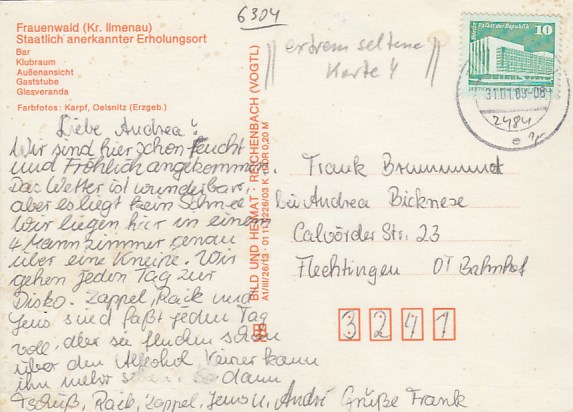 6304
Frauenwald (Kr. Ilmenau)
Staatlich anerkannter Erholungsort
Bar
Klubraum
Außenansicht
Gaststube
Glasveranda
Farbfotos: Karpf, Oelsnitz (Erzgeb.)
extrem seltene
Karte
10
31.01.89-08
Liebe Andrea!
Wir sind hier schon feucht
und Fröhlich angekommen.
Das Wetter ist wunderbar,
aber es liegt kein Schnee
Wir liegen hier in einem
4 Mannzimmer genau
über eine Kneipe. Wir
gehen jeden Tag zur
Disko. Zappel, Raik und
Jens sind faßt jeden Tag
voll aber sie fluchen schon
über den Alkohol keiner kann
ihn mehr dann
Tschüß, Raik, Zappel, Jens u. André Grüße Frank
BILD UND HEIMAT REICHENBACH (VOGTL)
A1/III/26/13 01 11 K 0,20 M
Frank
bei Andrea Bicknese
Calvörder Str. 23
Flechtingen OT Bahnhof
3241